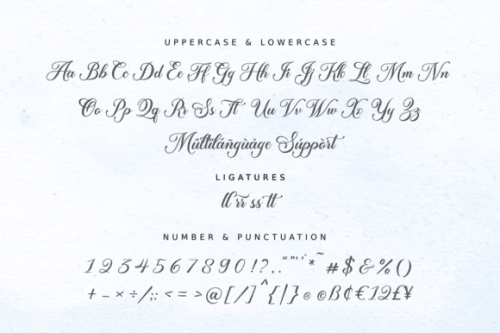 UPPERCASE & LOWERCASE
Aa Bb Cc Dd Ee Ff Gg Hh Ii Jj Kk Ll Mm Nn
Oo Pp Qq Rr Ss Tt Uu Vv Ww Xx Yy Zz
Mültiláñgùàge Súppòrt
LIGATURES
ll rr ss tt
NUMBER & PUNCTUATION
1 2 3 4 5 6 7 8 9 0 ! ? . . " " ' ' * ~ # $ & % ( )
+ - × ÷ / : ; < = > @ [ / ] ^ { | } ® © ß ¢ € 1 2 £ ¥